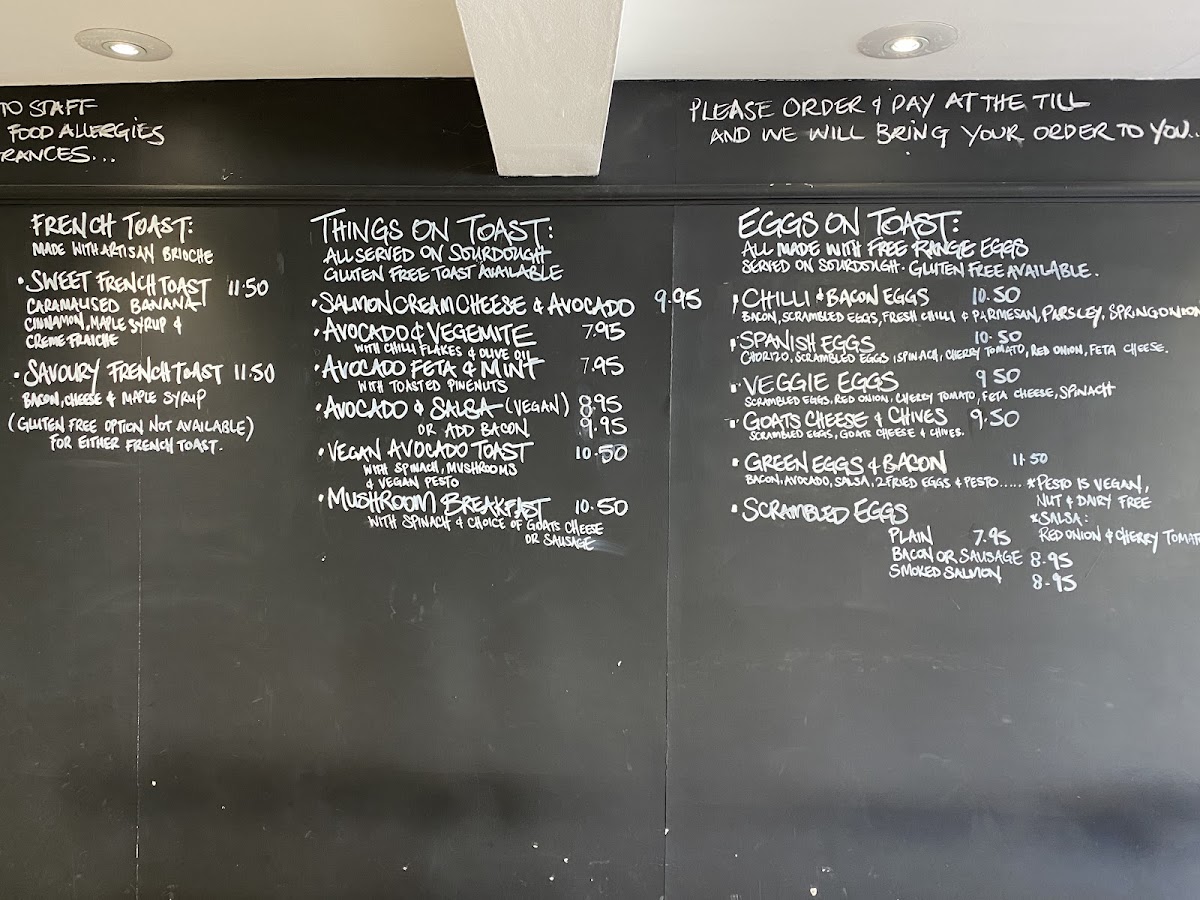 TO STAFF
FOOD ALLERGIES
RANCES...
PLEASE ORDER & PAY AT THE TILL
AND WE WILL BRING YOUR ORDER TO YOU..
FRENCH TOAST:
MADE WITH ARTISAN BRIOCHE
• SWEET FRENCH TOAST 11.50
CARAMALISED BANANA
CINNAMON, MAPLE SYRUP &
CREME FRAICHE
• SAVOURY FRENCH TOAST 11.50
BACON, CHEESE & MAPLE SYRUP
(GLUTEN FREE OPTION NOT AVAILABLE)
FOR EITHER FRENCH TOAST.
THINGS ON TOAST:
ALL SERVED ON SOURDOUGH
GLUTEN FREE TOAST AVAILABLE
• SALMON CREAM CHEESE & AVOCADO 9.95
• AVOCADO & VEGEMITE 7.95
WITH CHILLI FLAKES & OLIVE OIL
• AVOCADO FETA & MINT 7.95
WITH TOASTED PINENUTS
• AVOCADO & SALSA (VEGAN) 8.95
OR ADD BACON 9.95
• VEGAN AVOCADO TOAST 10.50
WITH SPINACH, MUSHROOMS
& VEGAN PESTO
• MUSHROOM BREAKFAST 10.50
WITH SPINACH & CHOICE OF GOATS CHEESE
OR SAUSAGE
EGGS ON TOAST:
ALL MADE WITH FREE RANGE EGGS
SERVED ON SOURDOUGH. GLUTEN FREE AVAILABLE.
• CHILLI & BACON EGGS 10.50
BACON, SCRAMBLED EGGS, FRESH CHILLI & PARMESAN, PARSLEY, SPRING ONION
• SPANISH EGGS 10.50
CHORIZO, SCRAMBLED EGGS, SPINACH, CHERRY TOMATO, RED ONION, FETA CHEESE.
• VEGGIE EGGS 9 50
SCRAMBLED EGGS, RED ONION, CHERRY TOMATO, FETA CHEESE, SPINACH
• GOATS CHEESE & CHIVES 9.50
SCRAMBLED EGGS, GOATS CHEESE & CHIVES.
• GREEN EGGS & BACON 11.50
BACON, AVOCADO, SALSA, 2 FRIED EGGS & PESTO..... * PESTO IS VEGAN,
NUT & DAIRY FREE
* SALSA:
RED ONION & CHERRY TOMAT
• SCRAMBLED EGGS
PLAIN 7.95
BACON OR SAUSAGE 8.95
SMOKED SALMON 8.95